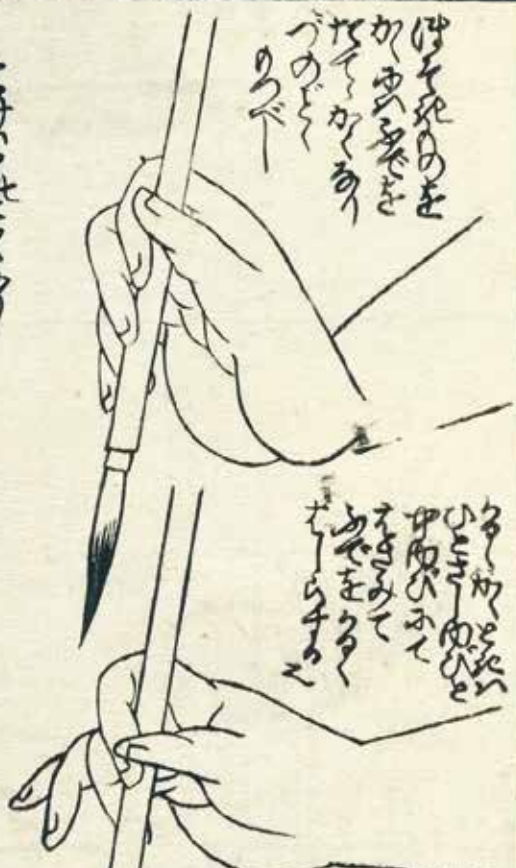 ほそきものを
かくにハふでを
たてゝかくなり
づのごとく
もつべし
かくときハ
ひとさしゆびと
中ゆびにて
はさみて
ふでをかるく
はしらする也